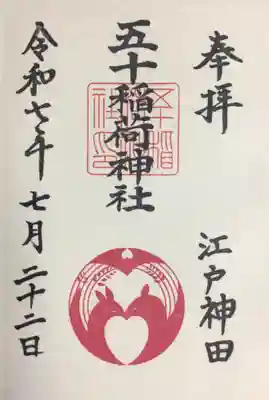 奉拝
江戸神田
五十稲荷神社
令和七年七月二十二日